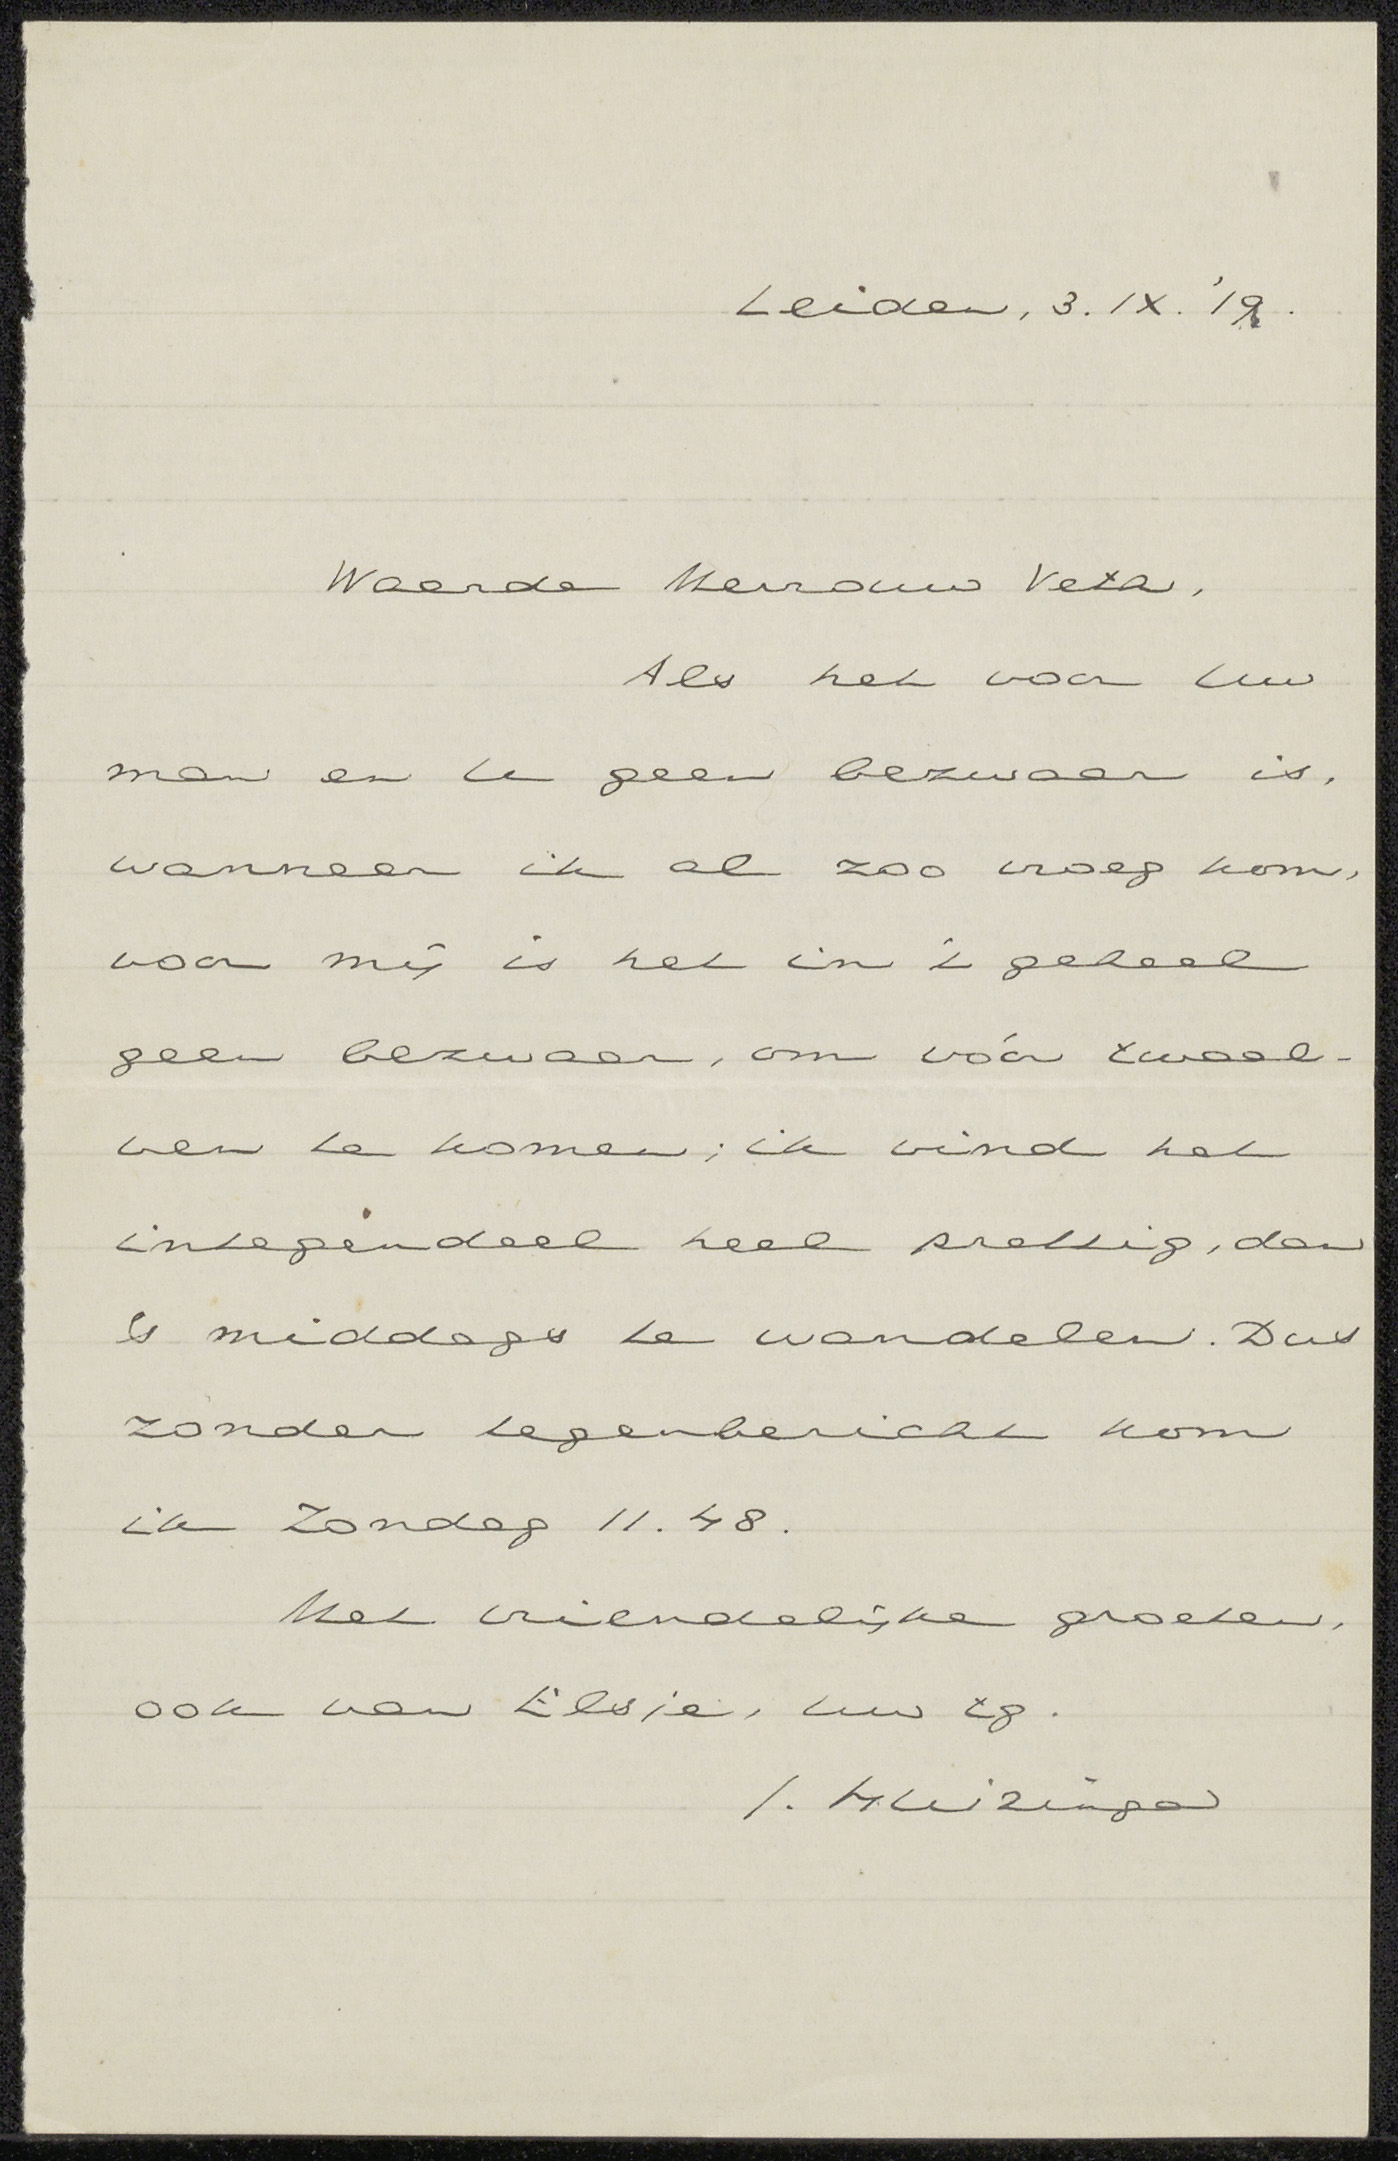 Leiden, 3. IX. '19.
Waarde Mevrouw Veth,
Als het voor Uw
man en U geen bezwaar is,
wanneer ik al zoo vroeg kom,
voor mij is het in 't geheel
geen bezwaar, om vóór twaal-
ven te komen; ik vind het
integendeel heel prettig, dan
's middags te wandelen. Dus
zonder tegenbericht kom
ik Zondag 11.48.
Met vriendelijke groeten,
ook van Elsje, Uw tg.
J. Huizinga